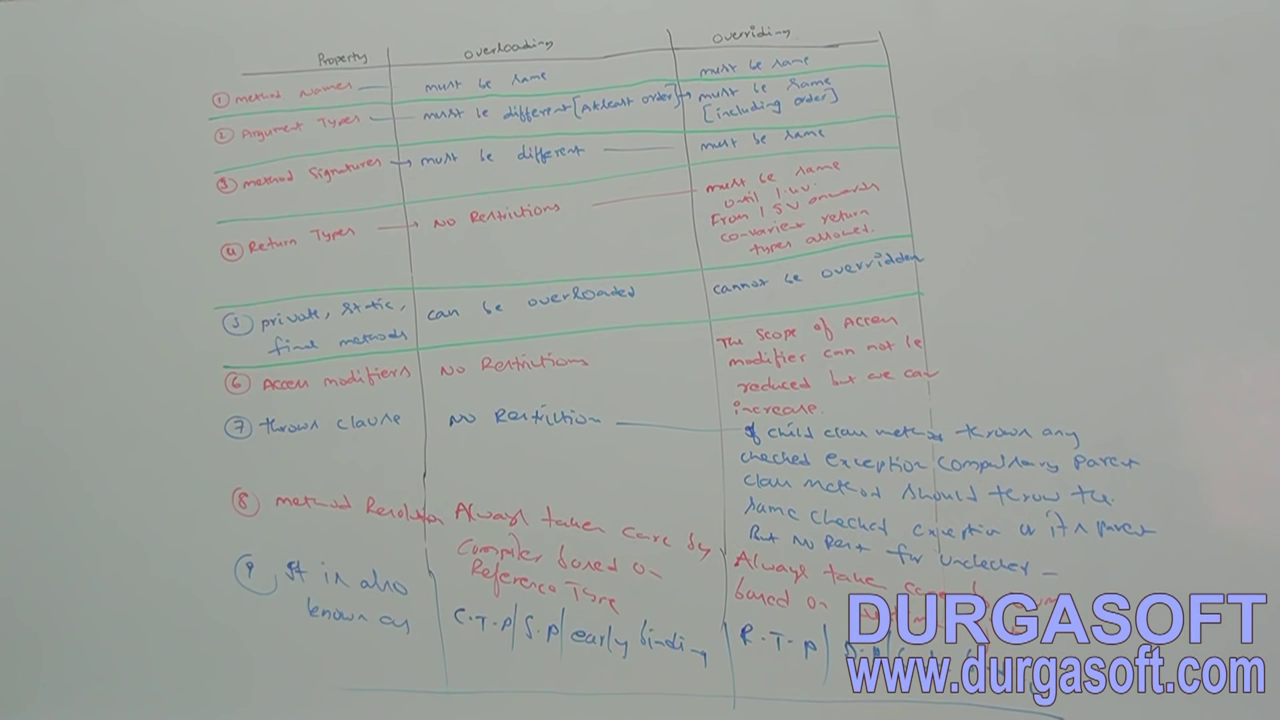 Property overloading overriding
① method Names must be same must be same
② Argument Types must be different [Atleast order] must be same
[including order]
③ method Signatures must be different must be same
④ Return Types No Restrictions must be same
until 1.4V.
From 1.5V onwards
co-varient return
types allowed.
⑤ private, static, can be overloaded cannot be overridden
final methods
⑥ Access modifiers No Restrictions The scope of Access
modifier can not be
reduced but we can
increase.
⑦ throws clause No Restriction If child class method throws any
checked exception compulsary parent
class method should throw the
same checked exception or its parent
But no Rest for unchecked
⑧ method Resolution Always taken care by
Compiler based on
Reference Type
Always take care
based on
⑨ It is also
known as
C.T.P/S.P/early binding R.T.P/
DURGASOFT
www.durgasoft.com